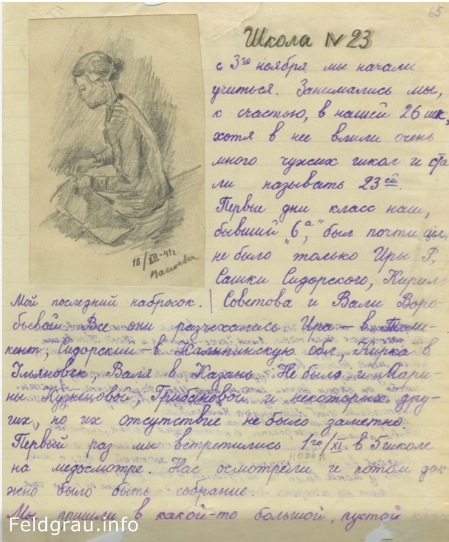 65
Школа № 23
с 3го ноября мы начали
учиться. Занимались мы,
к счастью, в нашей 26 шк,
хотя в нее влили очень
много чужих школ и ста
ли называть 23ей.
Первые дни класс наш,
бывший "6а", был почти цел,
не было только Иры Г,
Сашки Сидорского,
18/XII-41г.
Мой последний набросок.
Советова и Вали Воро
бьевой. Все они разъехались Ира – в Таш-
кент, Сидорский – в Калининскую обл, Кирка в
Ульяновск Валя в Казань. Не было и
Кузнецовой, Грибановой и некоторых дру-
гих, но их отсутствие не было заметно.
Первый раз мы встретились 1го/XI в школе
на медосмотре. Нас осмотрели и потом дол
жно было быть собрание.
Мы пришли в какой-то большой, пустой
Feldgrau.info